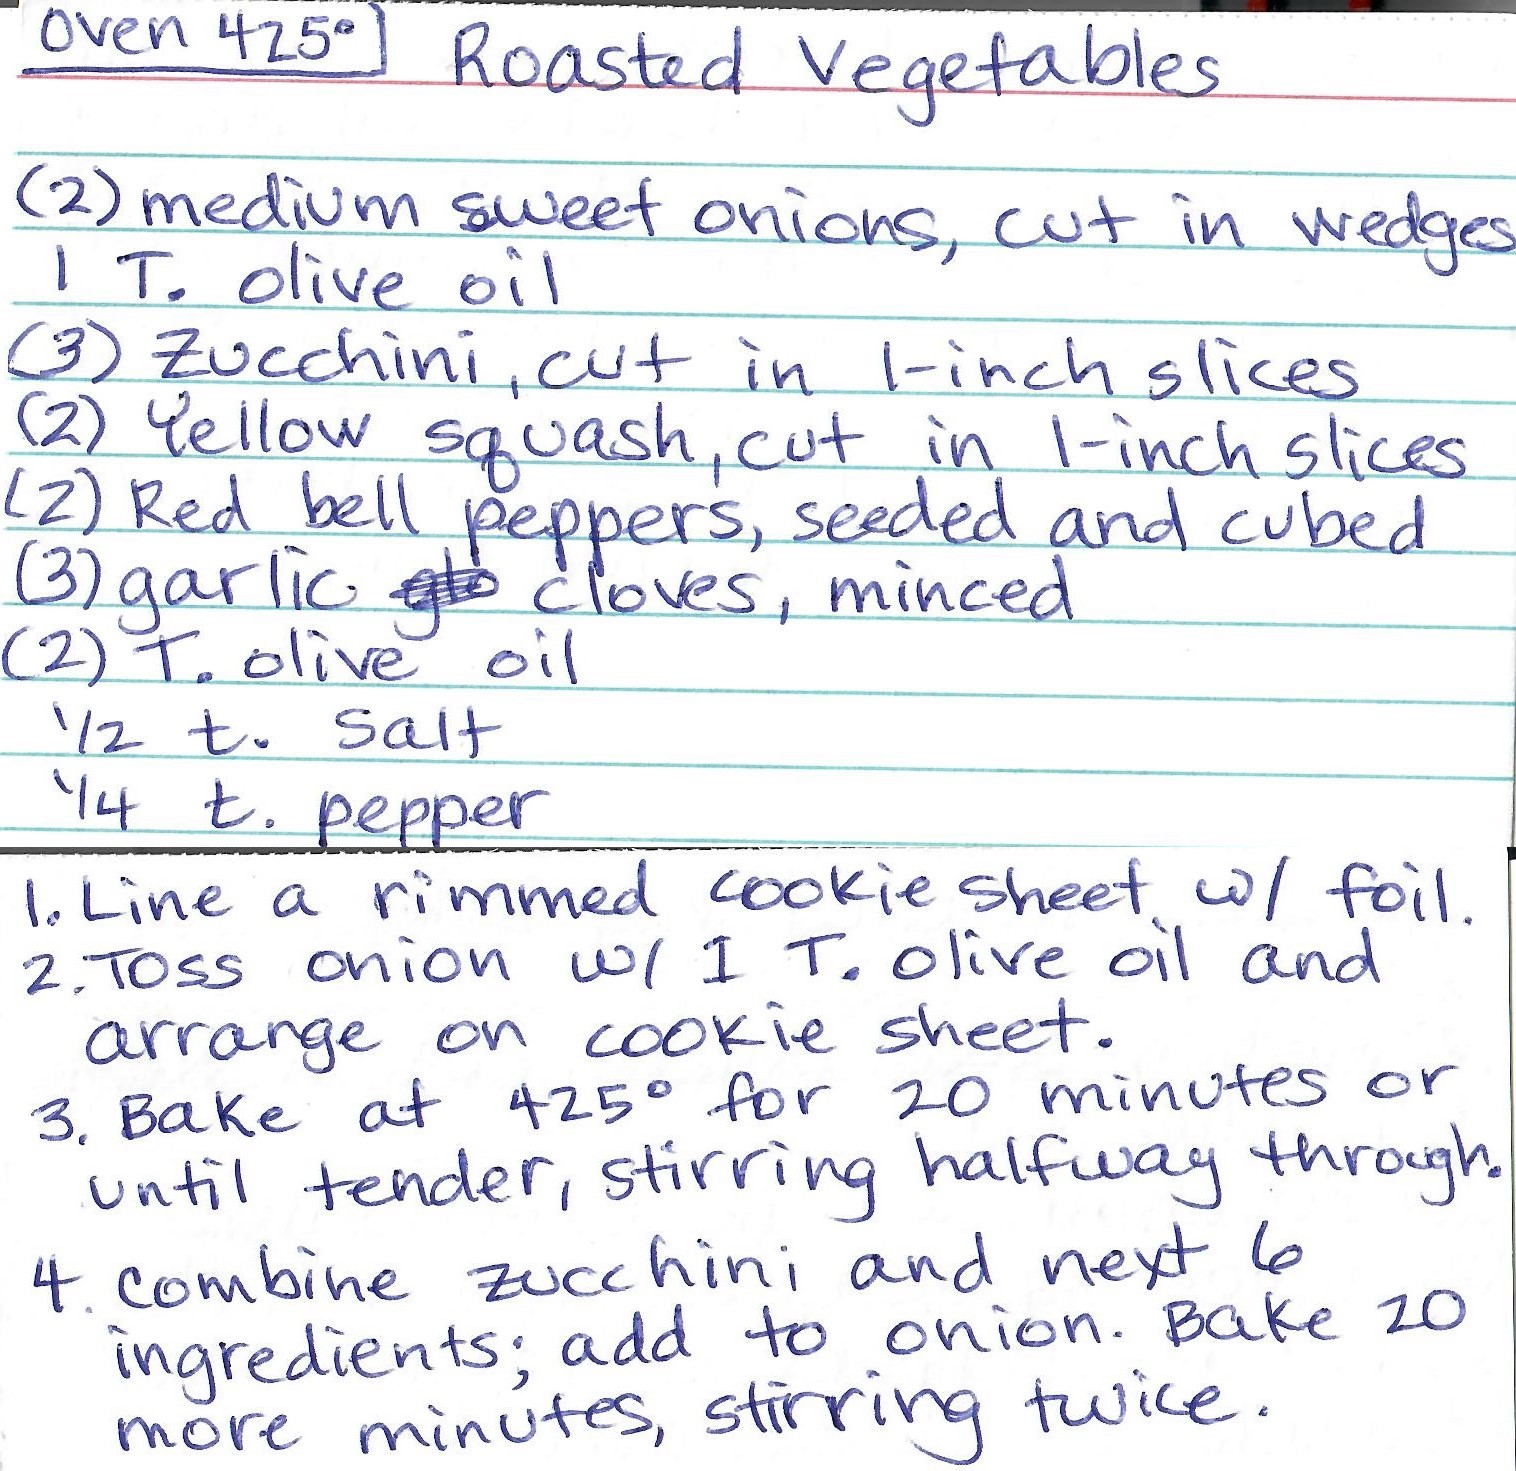 Oven 425° Roasted Vegetables
(2) medium sweet onions, cut in wedges
1 T. olive oil
(3) Zucchini, cut in 1-inch slices
(2) Yellow squash, cut in 1-inch slices
(2) Red bell peppers, seeded and cubed
(3) garlic cloves, minced
(2) T. olive oil
1/2 t. Salt
1/4 t. pepper
1. Line a rimmed cookie sheet w/ foil.
2. Toss onion w/ 1 T. olive oil and
arrange on cookie sheet.
3. Bake at 425° for 20 minutes or
until tender, stirring halfway through.
4. Combine zucchini and next 6
ingredients; add to onion. Bake 20
more minutes, stirring twice.